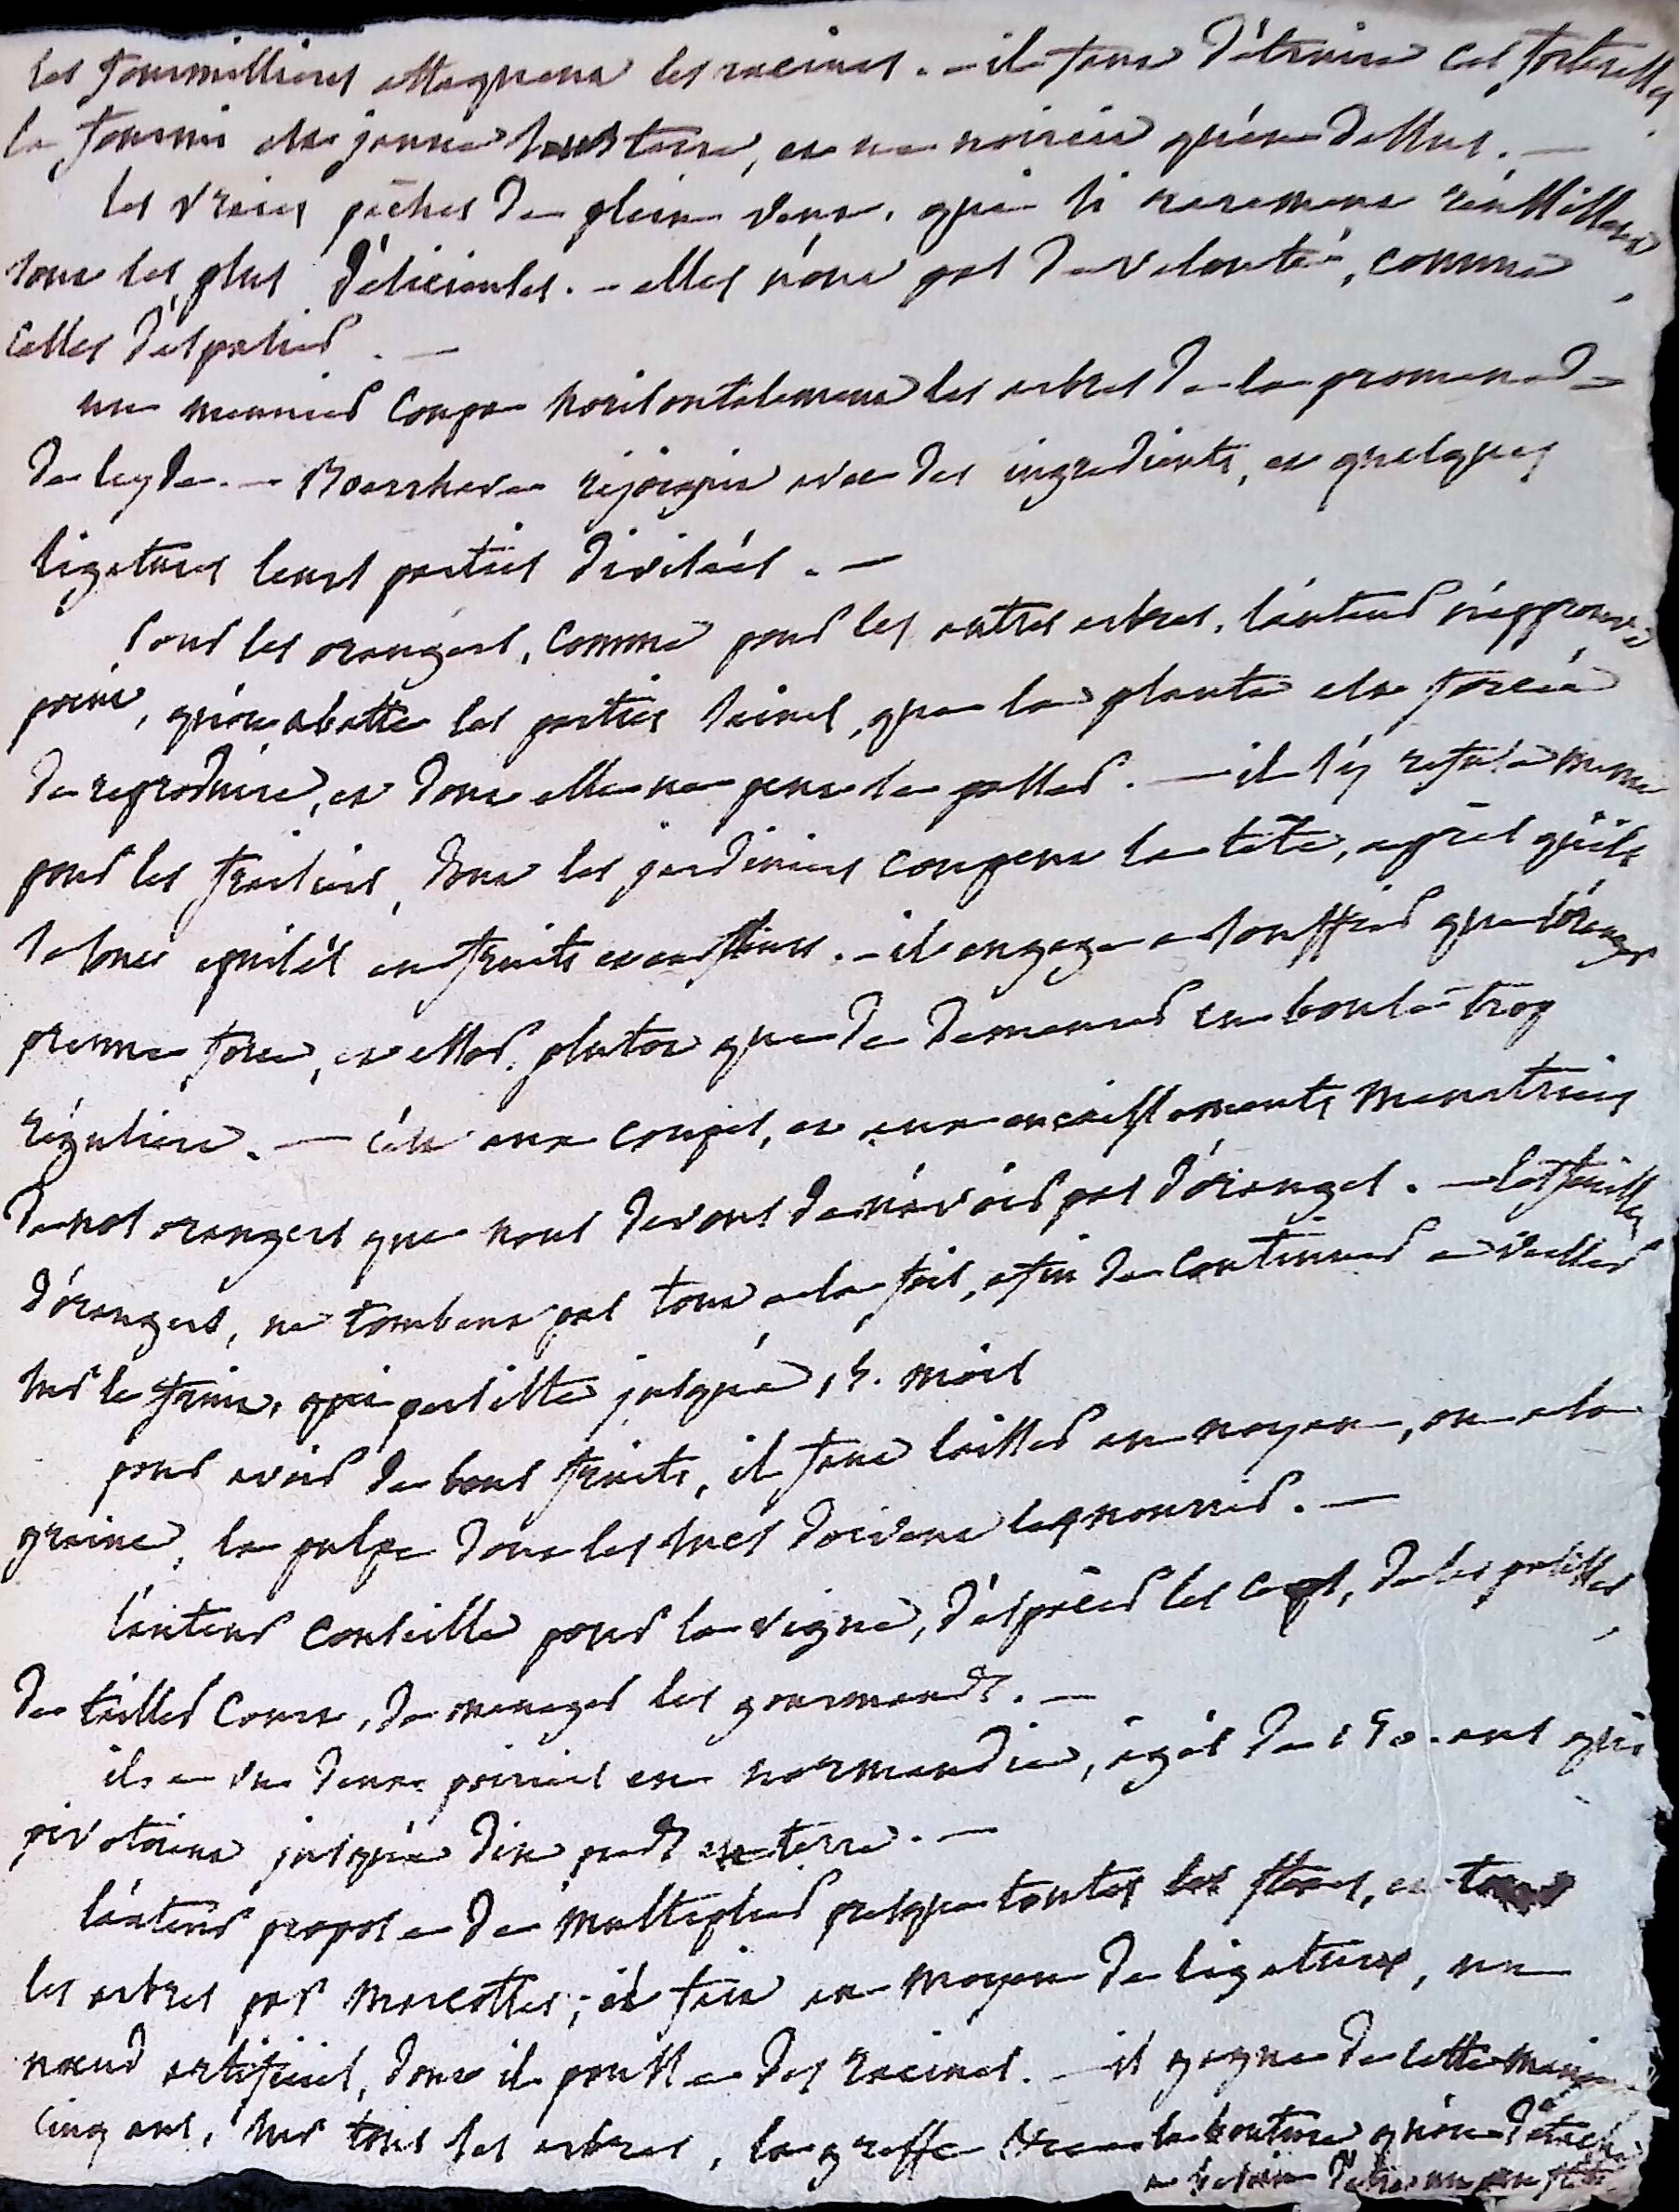 les fourmillieres attaquent les racines. - il faut détruire ces fortresses.
la fourmi est jaune sous terre, et ne noircit qu'en dessus. —
les vraies pêches de plein vent, qui si rarement réussissent,
sont les plus délicieuses. - elles n'ont pas de velouté, comme
celles d'espalier. —
un meunier coupa horisontalement les arbres de la promenade
de leyde. - Boerrhave rejoignit avec des ingredients, et quelques
ligatures leurs parties divisées. —
Pour les orangers, comme pour les autres arbres, l'auteur n'approuve
point, qu'on abatte les parties saines, que la plante est forcée
de reproduire, et dont elle ne peut se passer. — il s'y refuse même
pour les fraisiers, dont les jardiniers coupent la tête, après qu'ils
se sont épuisés en fruits et en fleurs. - il engage a souffrir que l'oranger
prenne force, et essor, plutot que de demeurer en boule trop
réguliere. — c'est aux coupes, et aux encaissements meurtriers
de nos orangers que nous devons de n'avoir pas d'oranges. - les feuilles
d'orangers, ne tombent pas tout a la fois, afin de continuer a veiller
sur le fruit, qui persiste jusqu'a 15. mois
pour avoir de bons fruits, il faut laisser au noyau, ou a la
graine, la pulpe dont les sucs doivent les nourrir. —
l'auteur conseille pour la vigne, d'espacer les ceps, de les palisser,
de tailler court, de menager les gourmands. —
il a vu deux poiriers en normandie, agés de 150. ans qui
pivotoient jusqu'a dix pieds en terre. —
l'auteur propose de multiplier presque toutes les fleurs, et
les arbres par marcottes; il fait au moyen de ligatures, un
noeud artificiel, dont il pousse des racines. - il gagne de cette
cinq ans, sur tous les arbres, la greffe la bouture qu'on détache
a besoin d'etre un peu